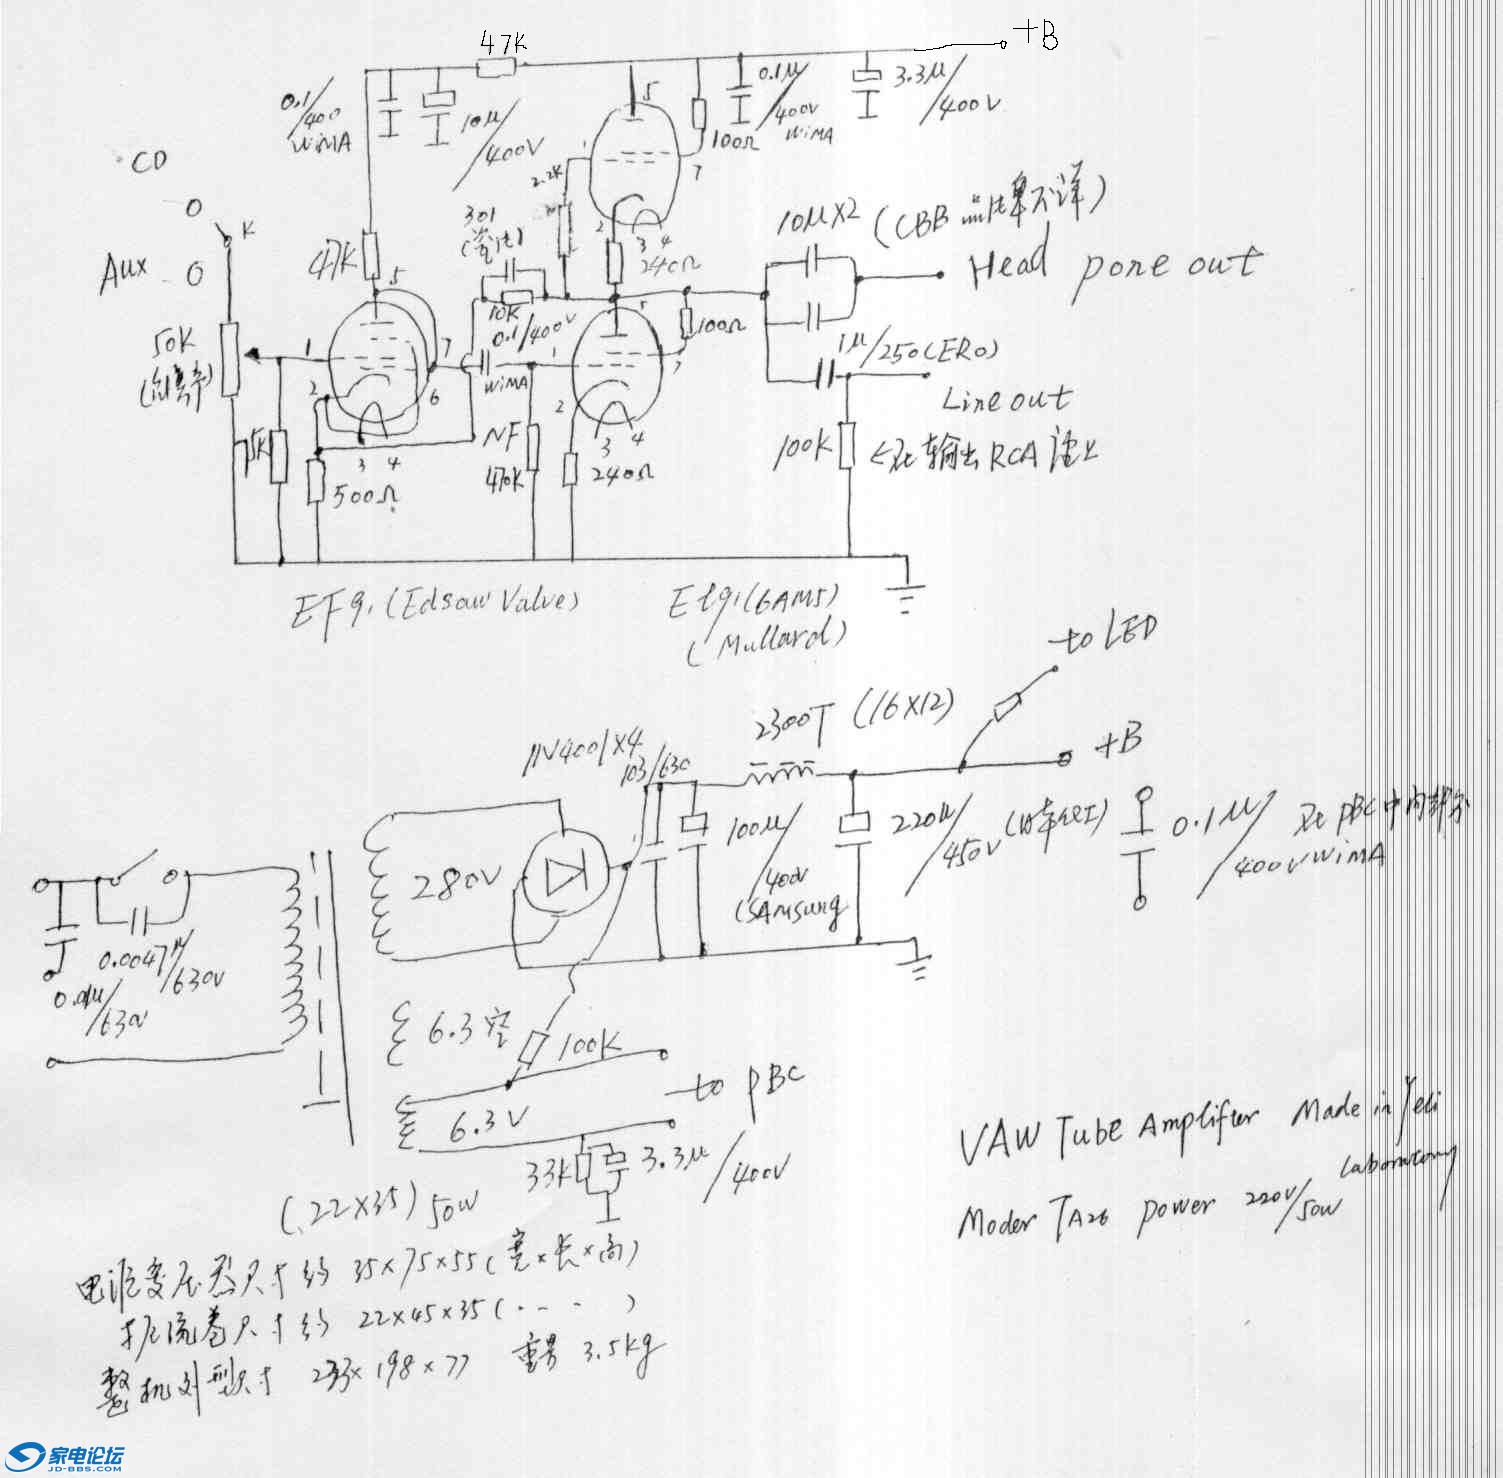 47K
+B
0.1/400
WiMA
10μ/400V
5
0.1μ/400V
WiMA
3.3μ/400V
100Ω
1
7
2.2K
CD
K
Aux
301
10μX2 (CBB 品牌不详)
2
3 4
240Ω
Head pone out
47K
5
10K
0.1/400V
WiMA
5
100Ω
50K
1
7
1
7
1μ/250(ERO)
Line out
2
6
2
3 4
NF
470K
3 4
240Ω
500Ω
100K
<在输出RCA
EF91(Edsaw Valve)
EL91(6AM5)
(Mullard)
to LED
2300T (16X12)
+B
1N4001X4
103/630
280V
100μ/400V
(SAMSung
220μ/450V
0.1μ/400V WiMA
在PBC中间部分
0.0047μ/630V
0.01μ/630V
6.3 空
100K
to PBC
6.3V
33K
3.3μ/400V
(22X35) 50W
VAW Tube Amplifier Made in Yeli
Laboratory
Moder TA26 power 220V/50W
电源变压器尺寸约 35×75×55(宽×长×高)
扼流卷尺寸约 22×45×35(· - - ·)
整机外型尺寸 233×198×77 重量 3.5kg
家电论坛
JD-BBS.COM